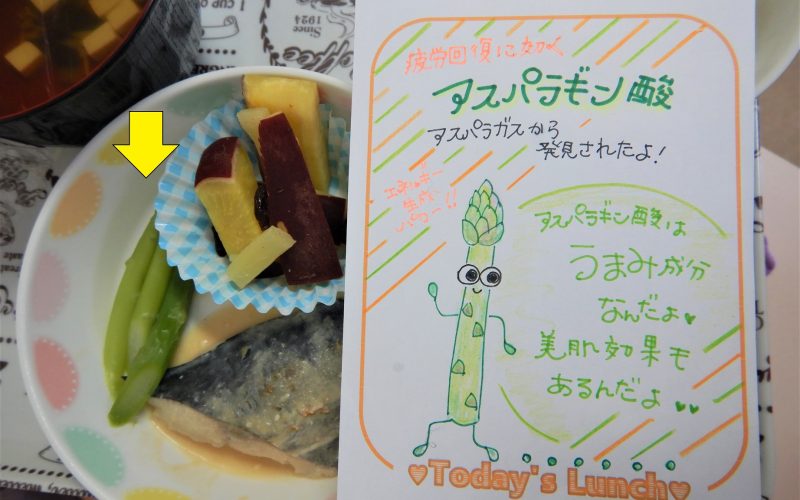 1 CUP OF
Since
1924
Coffee
疲労回復に効く
アスパラギン酸
アスパラガスから
発見されたよ!
エネルギー
生成
パワー!!
アスパラギン酸は
うまみ成分
なんだよ♥
美肌効果も
あるんだよ♥♥
♥Today's Lunch♥